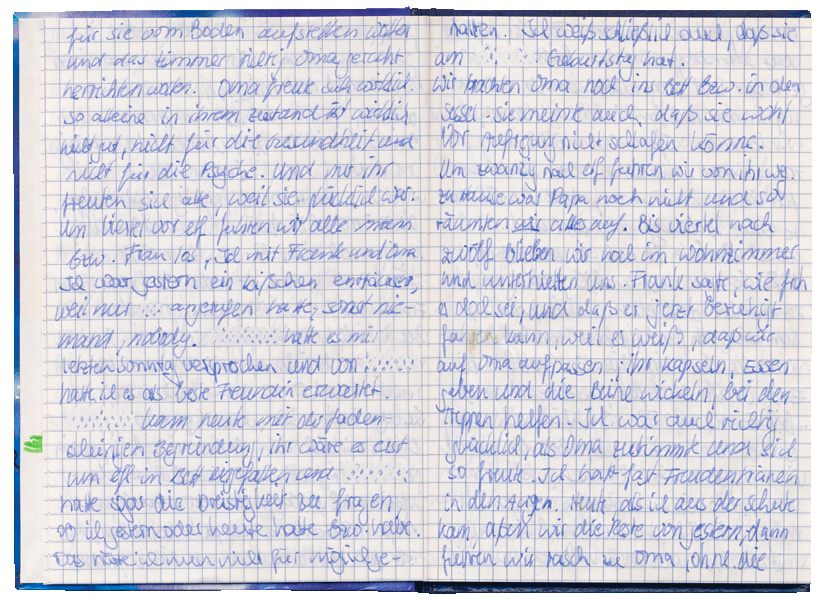 für sie vom Boden aufstellen wollen
und das Zimmer richtig Oma gerecht
herrichten wollen. Oma freute sich wirklich.
so alleine in ihrem Zustand ist wirklich
nicht gut, nicht für die Gesundheit und
nicht für die Psyche. Und mit ihr
freuten sich alle, weil sie glücklich war.
Um viertel vor elf fuhren wir alle
bzw. Frau los, Ich mit Frank und Oma.
Ich war gestern ein bißchen enttäuscht,
weil nur angerufen hatte, sonst nie-
mand, nobody. hatte es mir
letzten Sonntag versprochen und von
hatte ich es als beste Freundin erwartet.
kam heute mit der faden-
scheinigen Begründung, ihr wäre es erst
um elf im Bett eingefallen und
hatte sogar die Dreistigkeit zu fragen,
ob ich gestern oder heute hatte bzw. habe.
Das hätte ich nun nicht für möglich ge-
halten. Ich weiß schließlich auch, daß sie
am Geburtstag hat.
Wir brachten Oma noch ins Bett bzw. in den
Sessel. Sie meinte auch, daß sie wohl
vor Aufregung nicht schlafen könne.
Um zwanzig nach elf fuhren wir von ihr weg.
Zu Hause war Papa noch nicht und so
räumten wir alles auf. Bis viertel nach
zwölf blieben wir noch im Wohnzimmer
und unterhielten uns. Frank sagte, wie froh
er doch sei, und daß er jetzt beruhigt
fahren kann, weil er weiß, daß wir
auf Oma aufpassen. Ihr Kapseln, Essen
geben und die Beine wickeln, bei den
Treppen helfen. Ich war auch richtig
glücklich, als Oma zustimmte und sich
so freute. Ich hatte fast Freudentränen
in den Augen. Heute, als ich aus der Schule
kam, aßen wir die Reste von gestern, dann
fuhren wir rasch zu Oma, ohne die